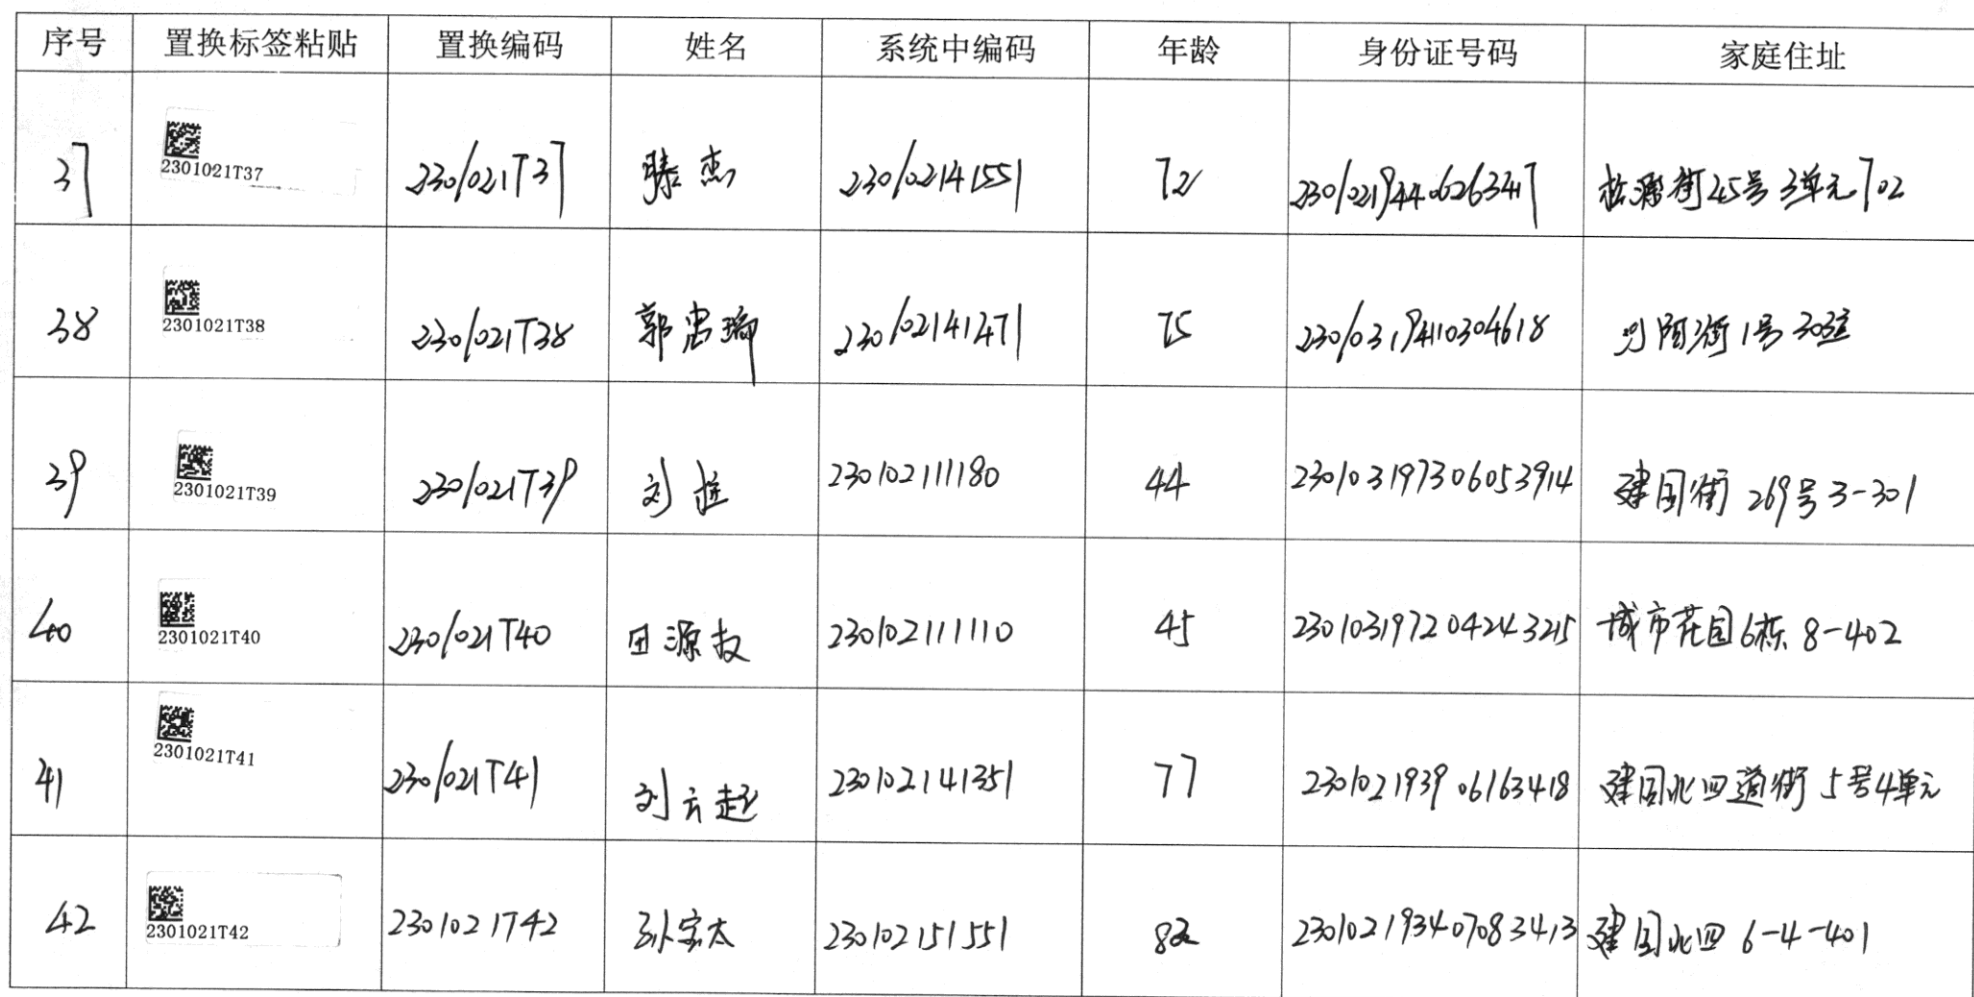 序号 置换标签粘贴 置换编码 姓名 系统中编码 年龄 身份证号码 家庭住址
37 2301021T37 2301021T37 滕杰 230102141551 72 230102194406263417 松源街45号3单元702
38 2301021T38 2301021T38 郭忠瑞 230102141471 75 230103194110304618 阳街1号303室
39 2301021T39 2301021T39 刘 230102111180 44 230103197306053914 建国街 269号3-301
40 2301021T40 2301021T40 田源 230102111110 45 230103197204243215 城市花园6栋8-402
41 2301021T41 2301021T41 刘云起 230102141351 77 230102193906163418 建国北四道街5号4单元
42 2301021T42 2301021T42 孙宝太 230102151551 82 230102193407083413 建国北四 6-4-401